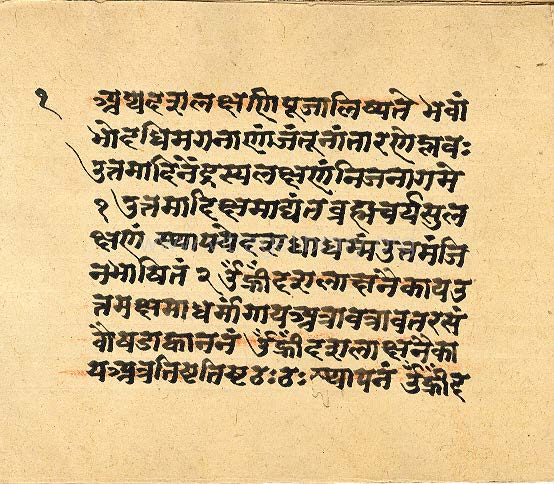 १ अथ दशलक्षणि पूजा लिष्यते भवां
भोदधिमगनाणं जंतूनां तारणे प्लवः
उत्तमादि जैनेंद्रस्य लक्षणं निजनागमे
१ उत्तमादिक्षमाद्यंत ब्रह्मचर्यसुल
क्षणं स्थापये दशधा धर्म्मं उत्तमं जि
नभाषितं २ उँ ह्रीं दशलाक्षनैकाय उ
त्तमक्षमाधर्मांगाय अत्रावत्रावतर सं
वौषडाह्वाननं उँ ह्रीं दशलाक्षनैका
य अत्र तिष्ट तिष्ट ठः ठः स्थापनं उँ ह्रीं द